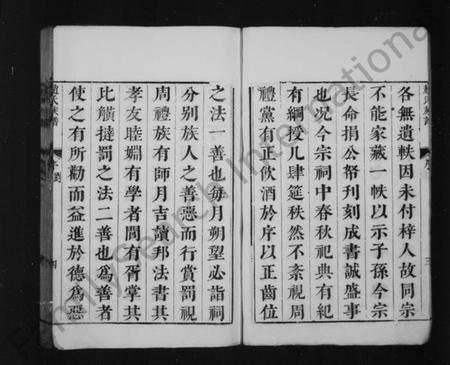 各無遺軼因未付梓人故同宗
不能家藏一帙以示子孫今宗
長命捐公帑刊刻成書誠盛事
也兄今宗祠中春秋祀典有紀
有綱授几肆筵秩然不紊視周
禮黨有正飲酒於序以正齒位
之法一善也每月朔望必詣祠
分别族人之善惡而行賞罰視
周禮族有師月吉讀邦法書其
孝友睦婣有學者閭有胥掌其
比觵撻罰之法二善也為善者
使之有所勸而益進於德為惡
FamilySearch International